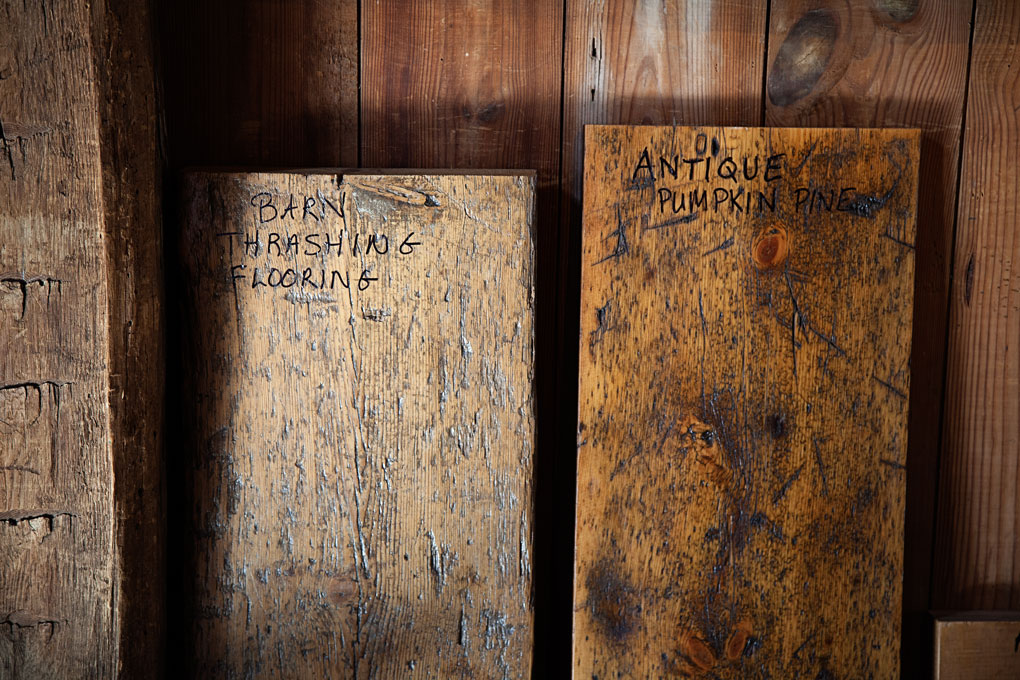 BARN
THRASHING
FLOORING
ANTIQUE
PUMPKIN PINE